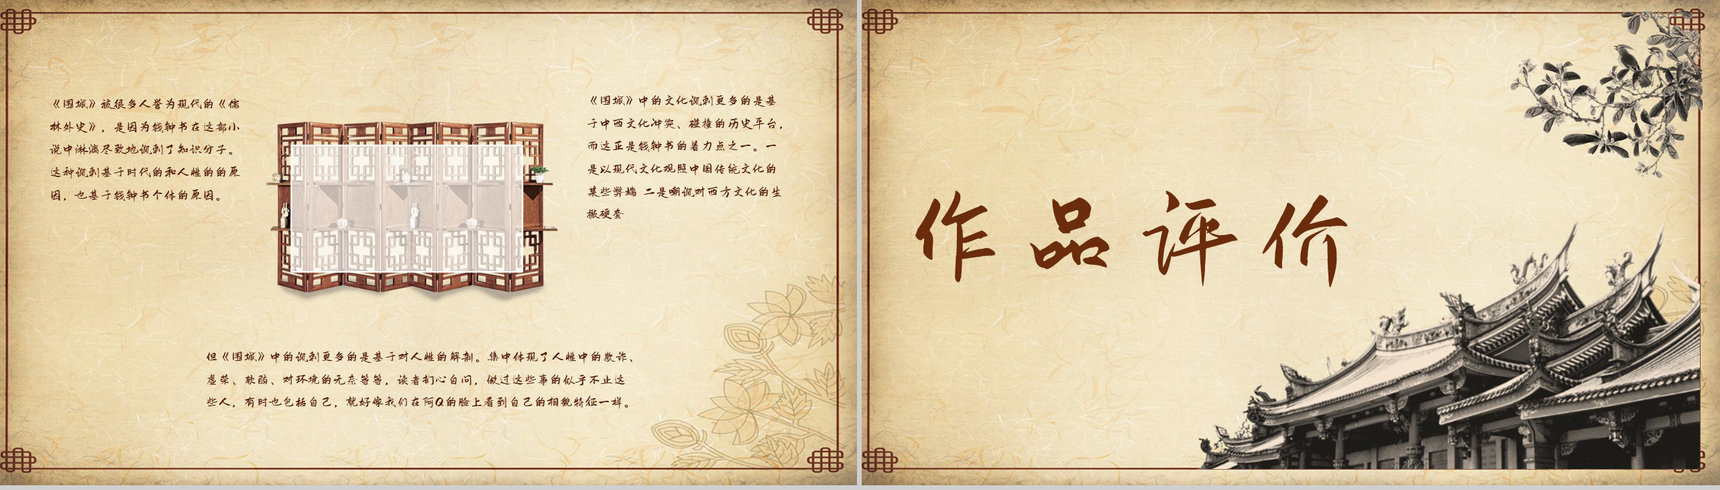 《围城》被很多人誉为现代的《儒
林外史》，是因为钱钟书在这部小
说中淋漓尽致地讽刺了知识分子。
这种讽刺基于时代的和人性的的原
因，也基于钱钟书个体的原因。
《围城》中的文化讽刺更多的是基
于中西文化冲突、碰撞的历史平台，
而这正是钱钟书的着力点之一。一
是以现代文化观照中国传统文化的
某些弊端 二是嘲讽对西方文化的生
搬硬套
但《围城》中的讽刺更多的是基于对人性的解剖。集中体现了人性中的欺诈、
虚荣、软弱、对环境的无奈等等，读者扪心自问，做过这些事的似乎不止这
些人，有时也包括自己，就好像我们在阿Q的脸上看到自己的相貌特征一样。
作品评价